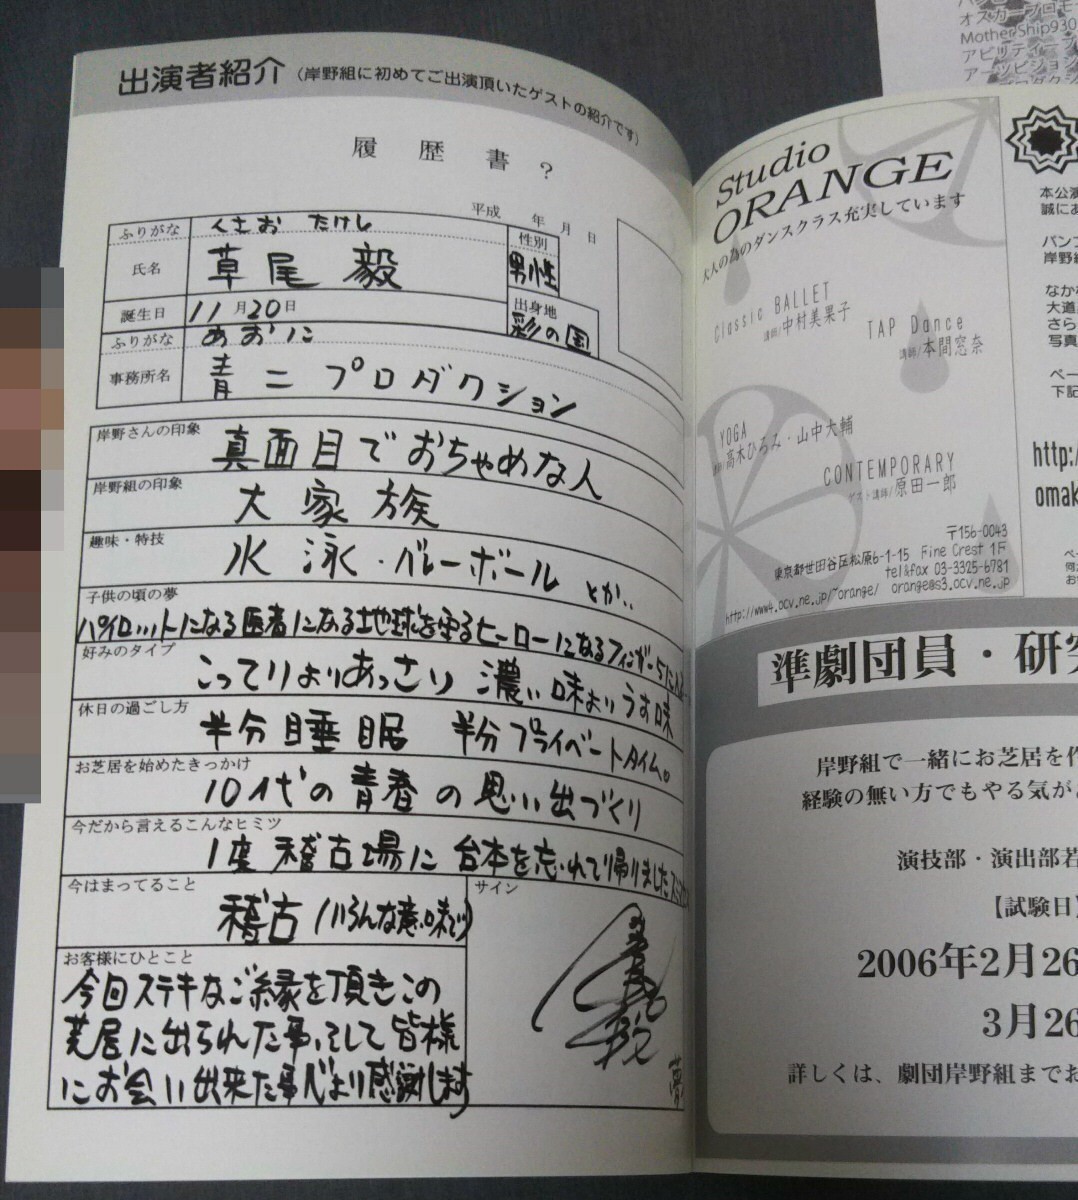 出演者紹介(岸野組に初めてご出演頂いたゲストの紹介です)
履歴書?
平成 年 月 日
ふりがな くさお たけし
氏名 草尾 毅
性別 男性
誕生日 11月20日
出身地 彩の国
ふりがな あおに
事務所名 青二プロダクション
岸野さんの印象
真面目でおちゃめな人
岸野組の印象
大家族
趣味・特技
水泳・バレーボール とか..
子供の頃の夢
パイロットになる医者になる地球を守るヒーローになるフィンガー5に入
好みのタイプ
こってりよりあっさり 濃い味よりうす味
休日の過ごし方
半分睡眠 半分プライベートタイム。
お芝居を始めたきっかけ
10代の青春の思い出づくり
今だから言えるこんなヒミツ
1度稽古場に台本を忘れて帰りました
今はまってること
稽古(いろんな意味で)
サイン
お客様にひとこと
今回ステキなご縁を頂きこの
芝居に出られた事、そして皆様
にお会い出来た事心より感謝します
夢
オスカープロモー
Mother Ship930
アビリティーブ
アーツビジョン
Studio
ORANGE
大人の為のダンスクラス充実しています
Classic BALLET
講師/中村美果子
TAP Dance
講師/本間窓奈
YOGA
講師/高木ひろみ・山中大輔
CONTEMPORARY
ゲスト講師/原田一郎
〒156-0043
東京都世田谷区松原6-1-15 Fine Crest 1F
tel&fax 03-3325-6781
http://www4.ocv.ne.jp/~orange/ orange@s3.ocv.ne.jp
本公演
誠にあ
パンフ
岸野組
なかな
大道具
さら
写真
ペー
下記
http:/
omak
ペー
何か
お
準劇団員・研究
岸野組で一緒にお芝居を作
経験の無い方でもやる気があ
演技部・演出部若
【試験日】
2006年2月26
3月26
詳しくは、劇団岸野組までお